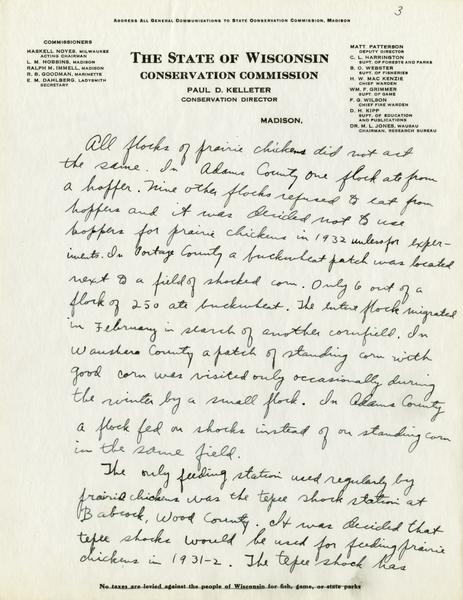 Address All General Communications to State Conservation Commission, Madison
3
COMMISSIONERS
HASKELL NOYES, MILWAUKEE
ACTING CHAIRMAN
L. M. HOBBINS, MADISON
RALPH M. IMMELL, MADISON
R. B. GOODMAN, MARINETTE
E. M. DAHLBERG, LADYSMITH
SECRETARY
THE STATE OF WISCONSIN
CONSERVATION COMMISSION
PAUL D. KELLETER
CONSERVATION DIRECTOR
MADISON,
MATT. PATTERSON
DEPUTY DIRECTOR
C. L. HARRINGTON
SUPT. OF FORESTS AND PARKS
B. O. WEBSTER
SUPT. OF FISHERIES
H. W. MAC KENZIE
CHIEF WARDEN
WM. F. GRIMMER
SUPT. OF GAME
F. G. WILSON
CHIEF FIRE WARDEN
D. H. KIPP
SUPT. OF EDUCATION
AND PUBLICATIONS
DR. M. L. JONES, WAUSAU
CHAIRMAN, RESEARCH BUREAU
All flocks of prairie chickens did not act
the same. In Adams County one flock ate from
a hopper. Nine other flocks refused to eat from
hoppers and it was decided not to use
hoppers for prairie chickens in 1932 unless for exper-
iments. In Portage County a buckwheat patch was located
next to a field of shocked corn. Only 6 out of a
flock of 250 ate buckwheat. The entire flock migrated
in February in search of another cornfield. In
Waushara County a patch of standing corn with
good corn was visited only occasionally during
the winter by a small flock. In Adams County
a flock fed on shocks instead of on standing corn
in the same field.
The only feeding station used regularly by
prairie chickens was the tepee shock station at
Babcock, Wood County. It was decided that
tepee shocks would be used for feeding prairie
chickens in 1931-2. The tepee shock has
No taxes are levied against the people of Wisconsin for fish, game, or state parks